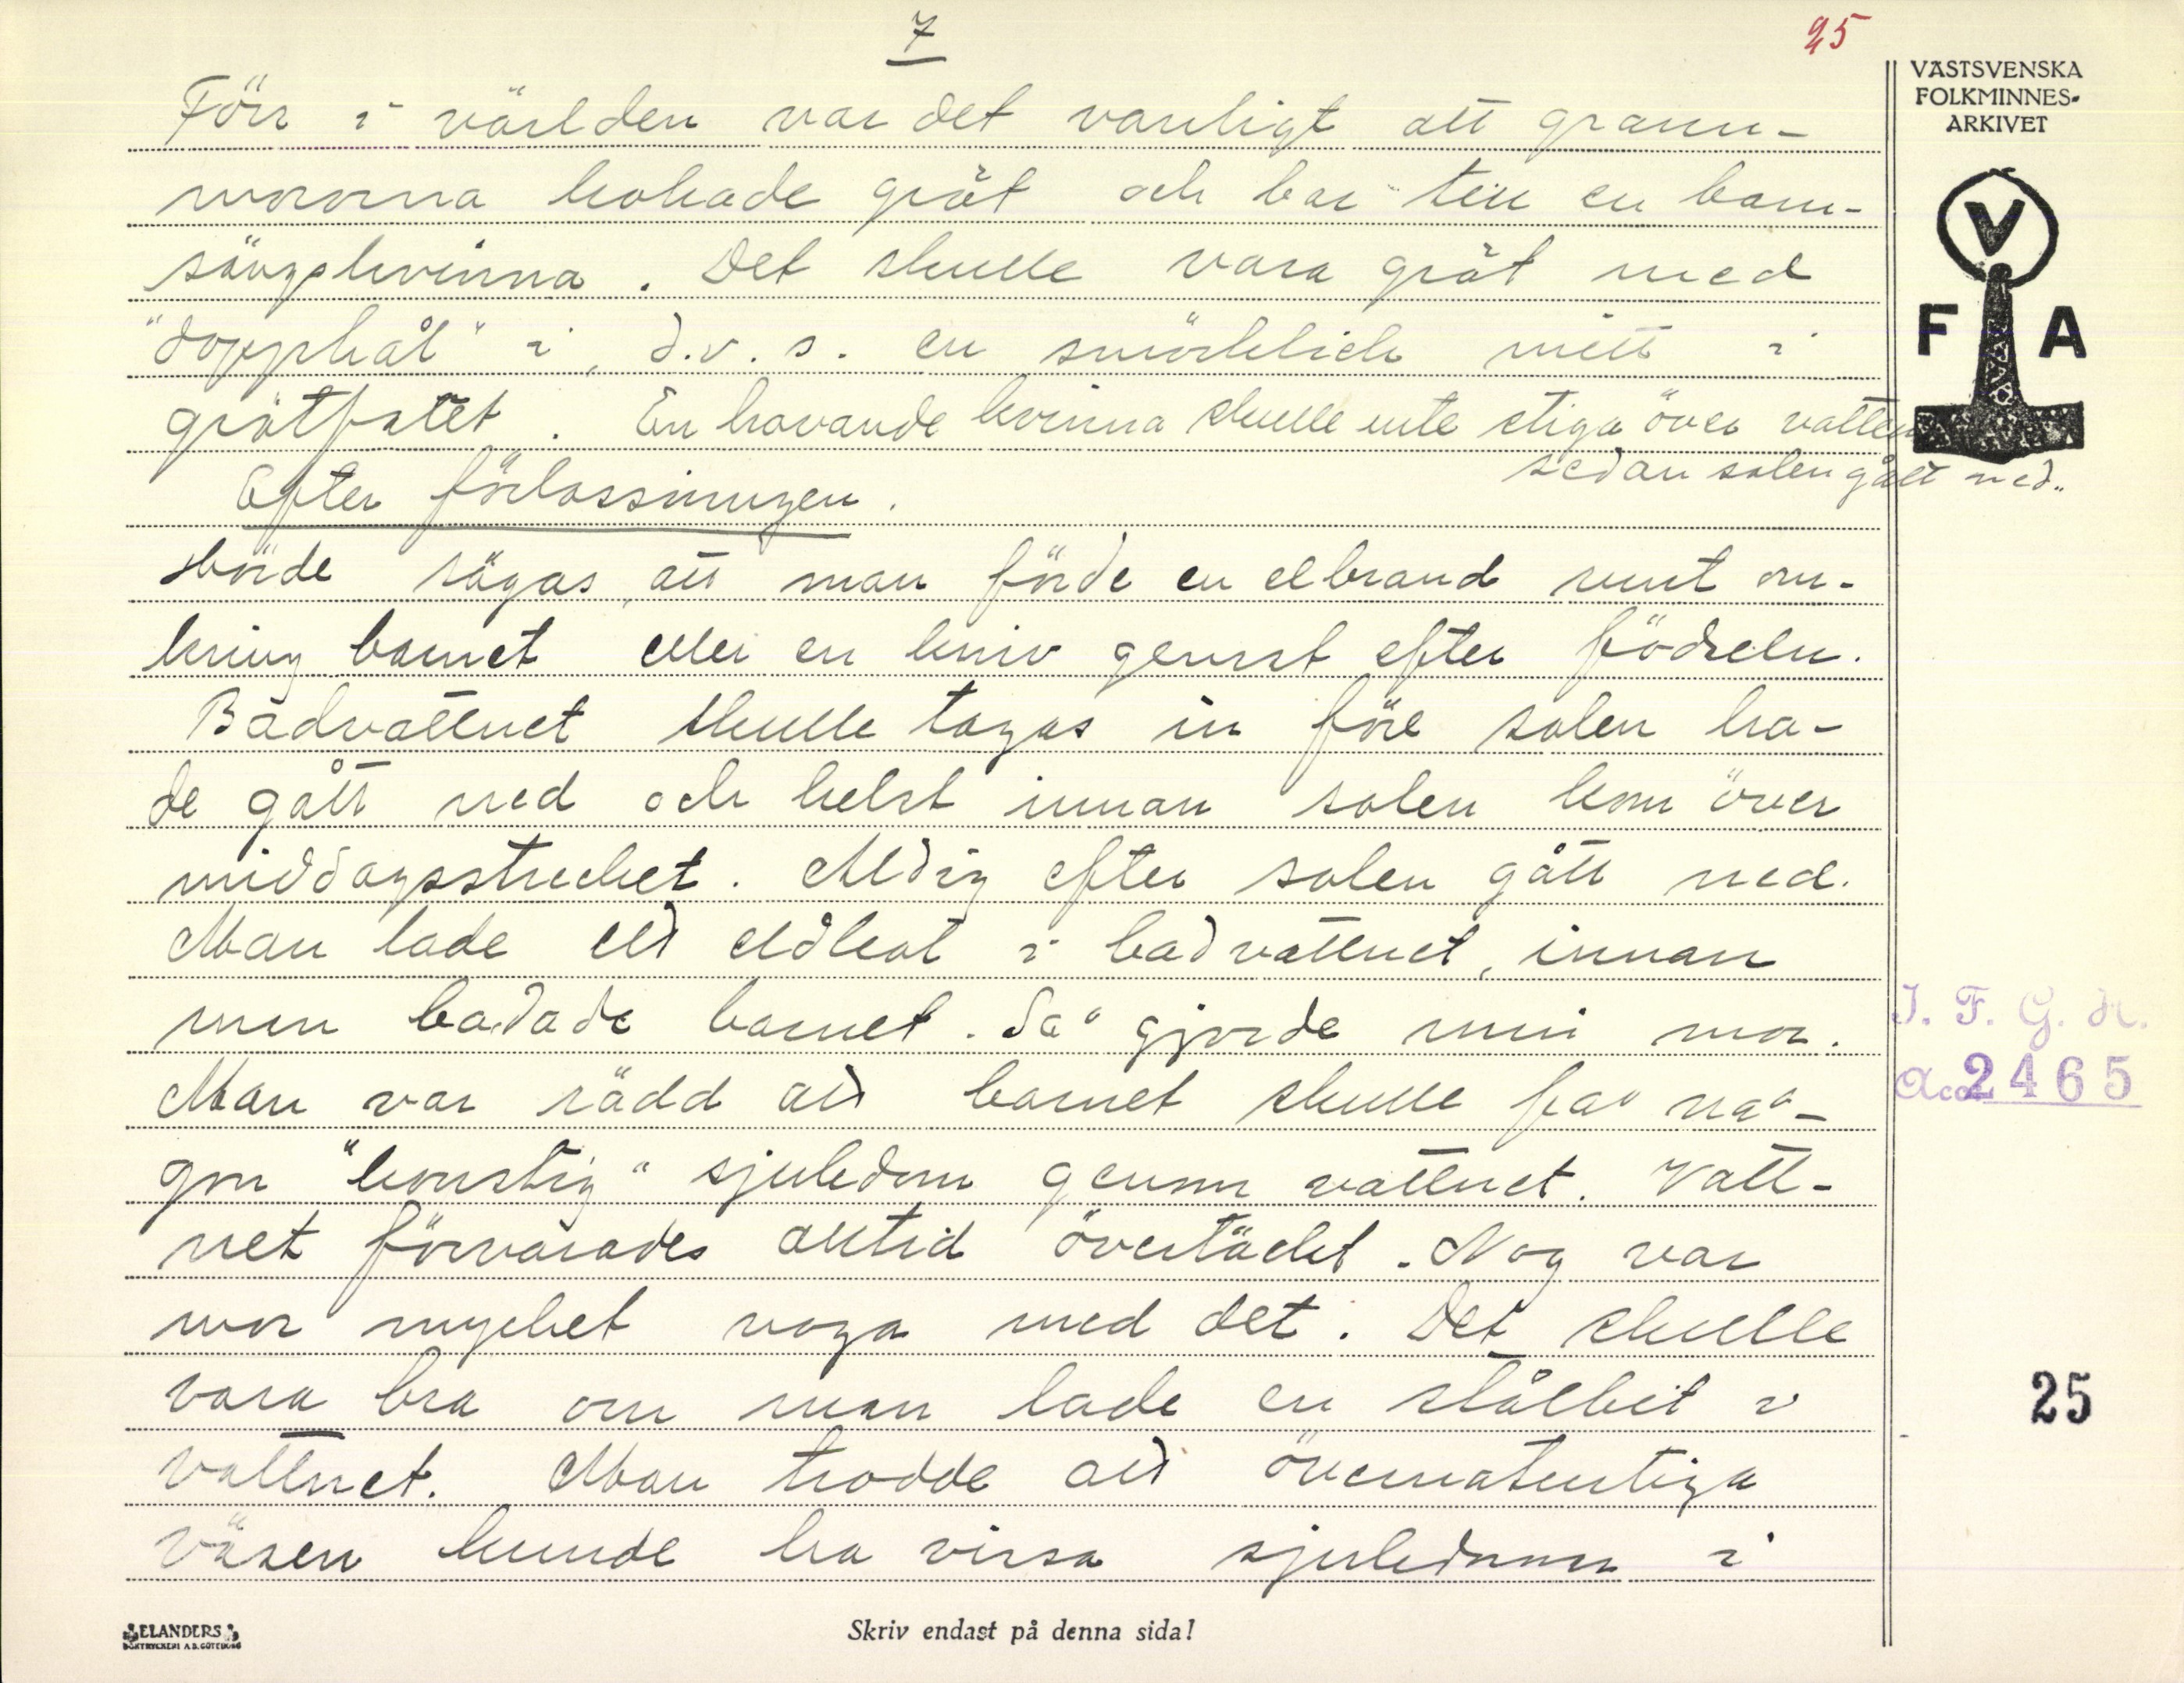 7
25
VÄSTSVENSKA
FOLKMINNES-
ARKIVET
V
F A
Förr i världen var det vanligt att grann-
mororna kokade gröt och bar till en barn-
sängskvinna. Det skulle vara gröt med
"dopphål" i, d.v.s. en smörklick mitt i
grötfatet. En havande kvinna skulle inte stiga över vatten
sedan solen gått ned.
Efter förlossningen.
Hörde sägas, att man förde en elbrand runt om-
kring barnet eller en kniv genast efter födseln.
Badvattnet skulle tagas in före solen ha-
de gått ned och helst innan solen kom över
middagsstrecket. Aldrig efter solen gått ned.
Man lade ett eldkol i badvattnet, innan
man badade barnet. Så gjorde min mor.
Man var rädd att barnet skulle få nå-
gon "konstig" sjukdom genom vattnet. Vatt-
net förvarades alltid övertäckt. Nog var
mor mycket noga med det. Det skulle
vara bra om man lade en stålbit i
vattnet. Man trodde att övernaturliga
väsen kunde ha vissa sjukdomar i
I. F. G. H.
Acc. 2465
25
ELANDERS
BOKTRYCKERI A.B. GÖTEBORG
Skriv endast på denna sida!